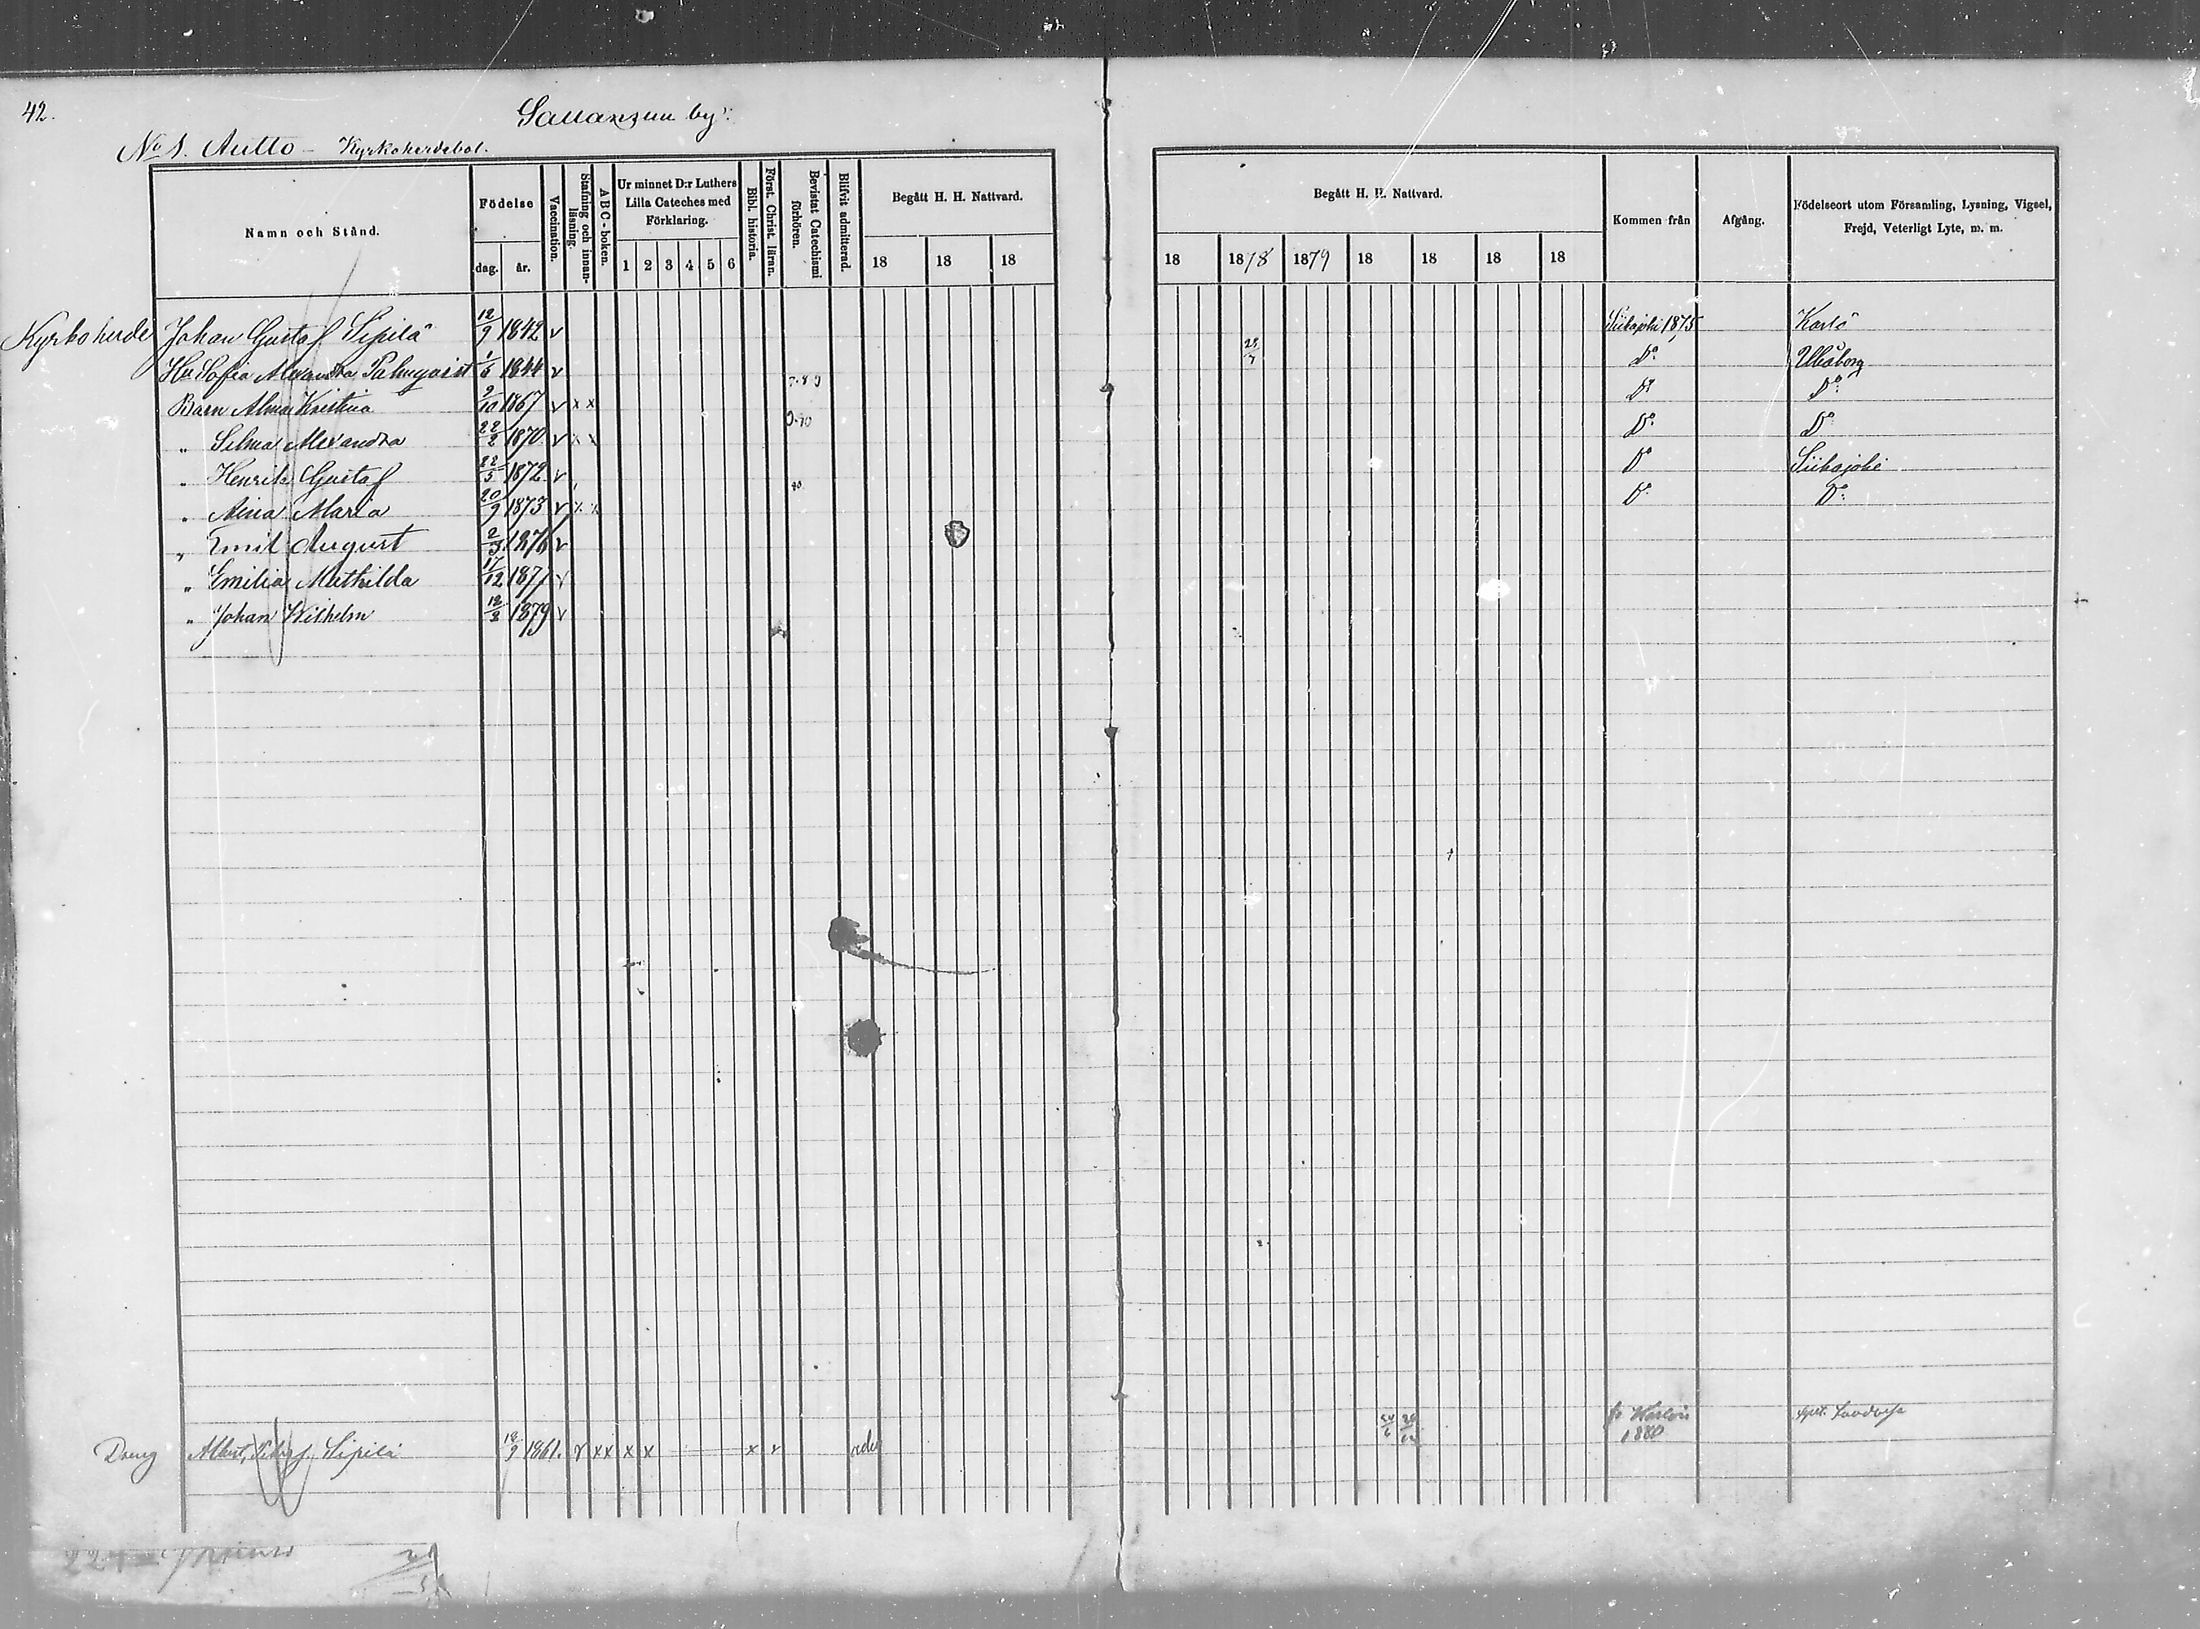 42.
by:
No 1. Autto - Kyrkoherdebol.
Namn och Stånd.
Födelse
dag.
år.
Vaccination.
Stafning och innanläsning.
ABC-boken.
Ur minnet D:r Luthers Lilla Cateches med Förklaring.
1 2 3 4 5 6
Bibl. historia.
Först. Christ. läran.
Bevistat Catechismi förhören.
Blifvit admitterad.
Begått H. H. Nattvard.
18 18 18
Begått H. H. Nattvard.
18 1878 1879 18 18 18 18
Kommen från
Afgång.
Födelseort utom Församling, Lysning, Vigsel, Frejd, Veterligt Lyte, m. m.
Kyrkoherde Johan Gustaf Sipilä 12/9 1842 v Siikajoki 1875 Karlö
Hu Sofia Alexandra Palmqvist 1/6 1844 v D:o Uleåborg
Barn Alma Kristina 9/10 1867 v x x D:o D:o
" Selma Alexandra 22/2 1870 v x x D:o D:o
" Henrik Gustaf 22/5 1872 v D:o Siikajoki
" Aina Maria 20/9 1873 v x x D:o D:o
" Emil August 2/3 1876 v
" Emilia Mathilda 17/12 1877 v
" Johan Wilhelm 12/3 1879 v
Dreng Albert Sipilä 12/9 1861. v x x x x x v 1880